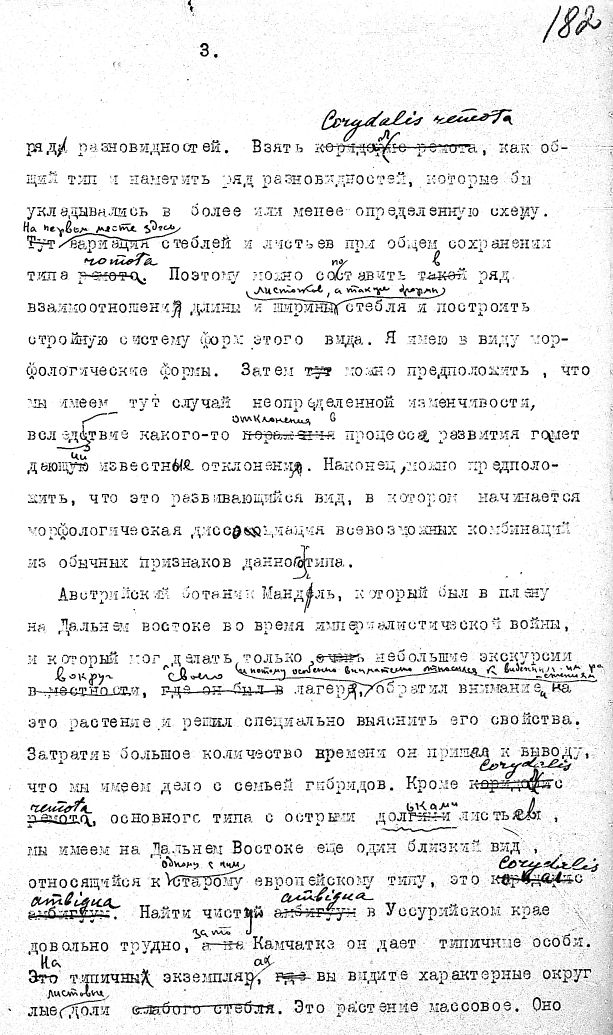 182
3.
Corydalis remota
ряд разновидностей. Взять коридолис ремота, как об-
щий тип и наметить ряд разновидностей, которые бы
укладывались в более или менее определенную схему.
На первом месте здесь
Тут вариация стеблей и листьев при общем сохранении
remota
типа ремота. Поэтому можно составить такой ряд
листочков, а также формы
взаимоотношений длины и ширины стебля и построить
стройную систему форм этого вида. Я имею в виду мор-
фологические формы. Затем тут можно предположить, что
мы имеем тут случай неопределенной изменчивости,
отклонения в
вследствие какого-то поражения процесса развития гамет
дающую известные отклонения. Наконец, можно предполо-
жить, что это развивающийся вид, в котором начинается
морфологическая диссоциация всевозможных комбинаций
из обычных признаков данного типа.
Австрийский ботаник Мандель, который был в плену
на Дальнем востоке во время империалистической войны,
и который мог делать только очень небольшие экскурсии
вокруг своего и потому особенно внимательно относился к виденным им растениям
в местности, где он был в лагере, обратил внимание на
это растение и решил специально выяснить его свойства.
Затратив большое количество времени он пришел к выводу,
corydalis
что мы имеем дело с семьей гибридов. Кроме коридолис
remota
ремота, основного типа с острыми дольками листьев,
мы имеем на Дальнем Востоке еще один близкий вид,
одному с ним corydalis
относящийся к старому европейскому типу, это коридалис
ambigua ambigua
амбигуум. Найти чистую амбигуум в Уссурийском крае
зато
довольно трудно, а на Камчатке он дает типичные особи.
На ах
Это типичных экземпляр, где вы видите характерные округ
листовые
лые доли слабого стебля. Это растение массовое. Оно